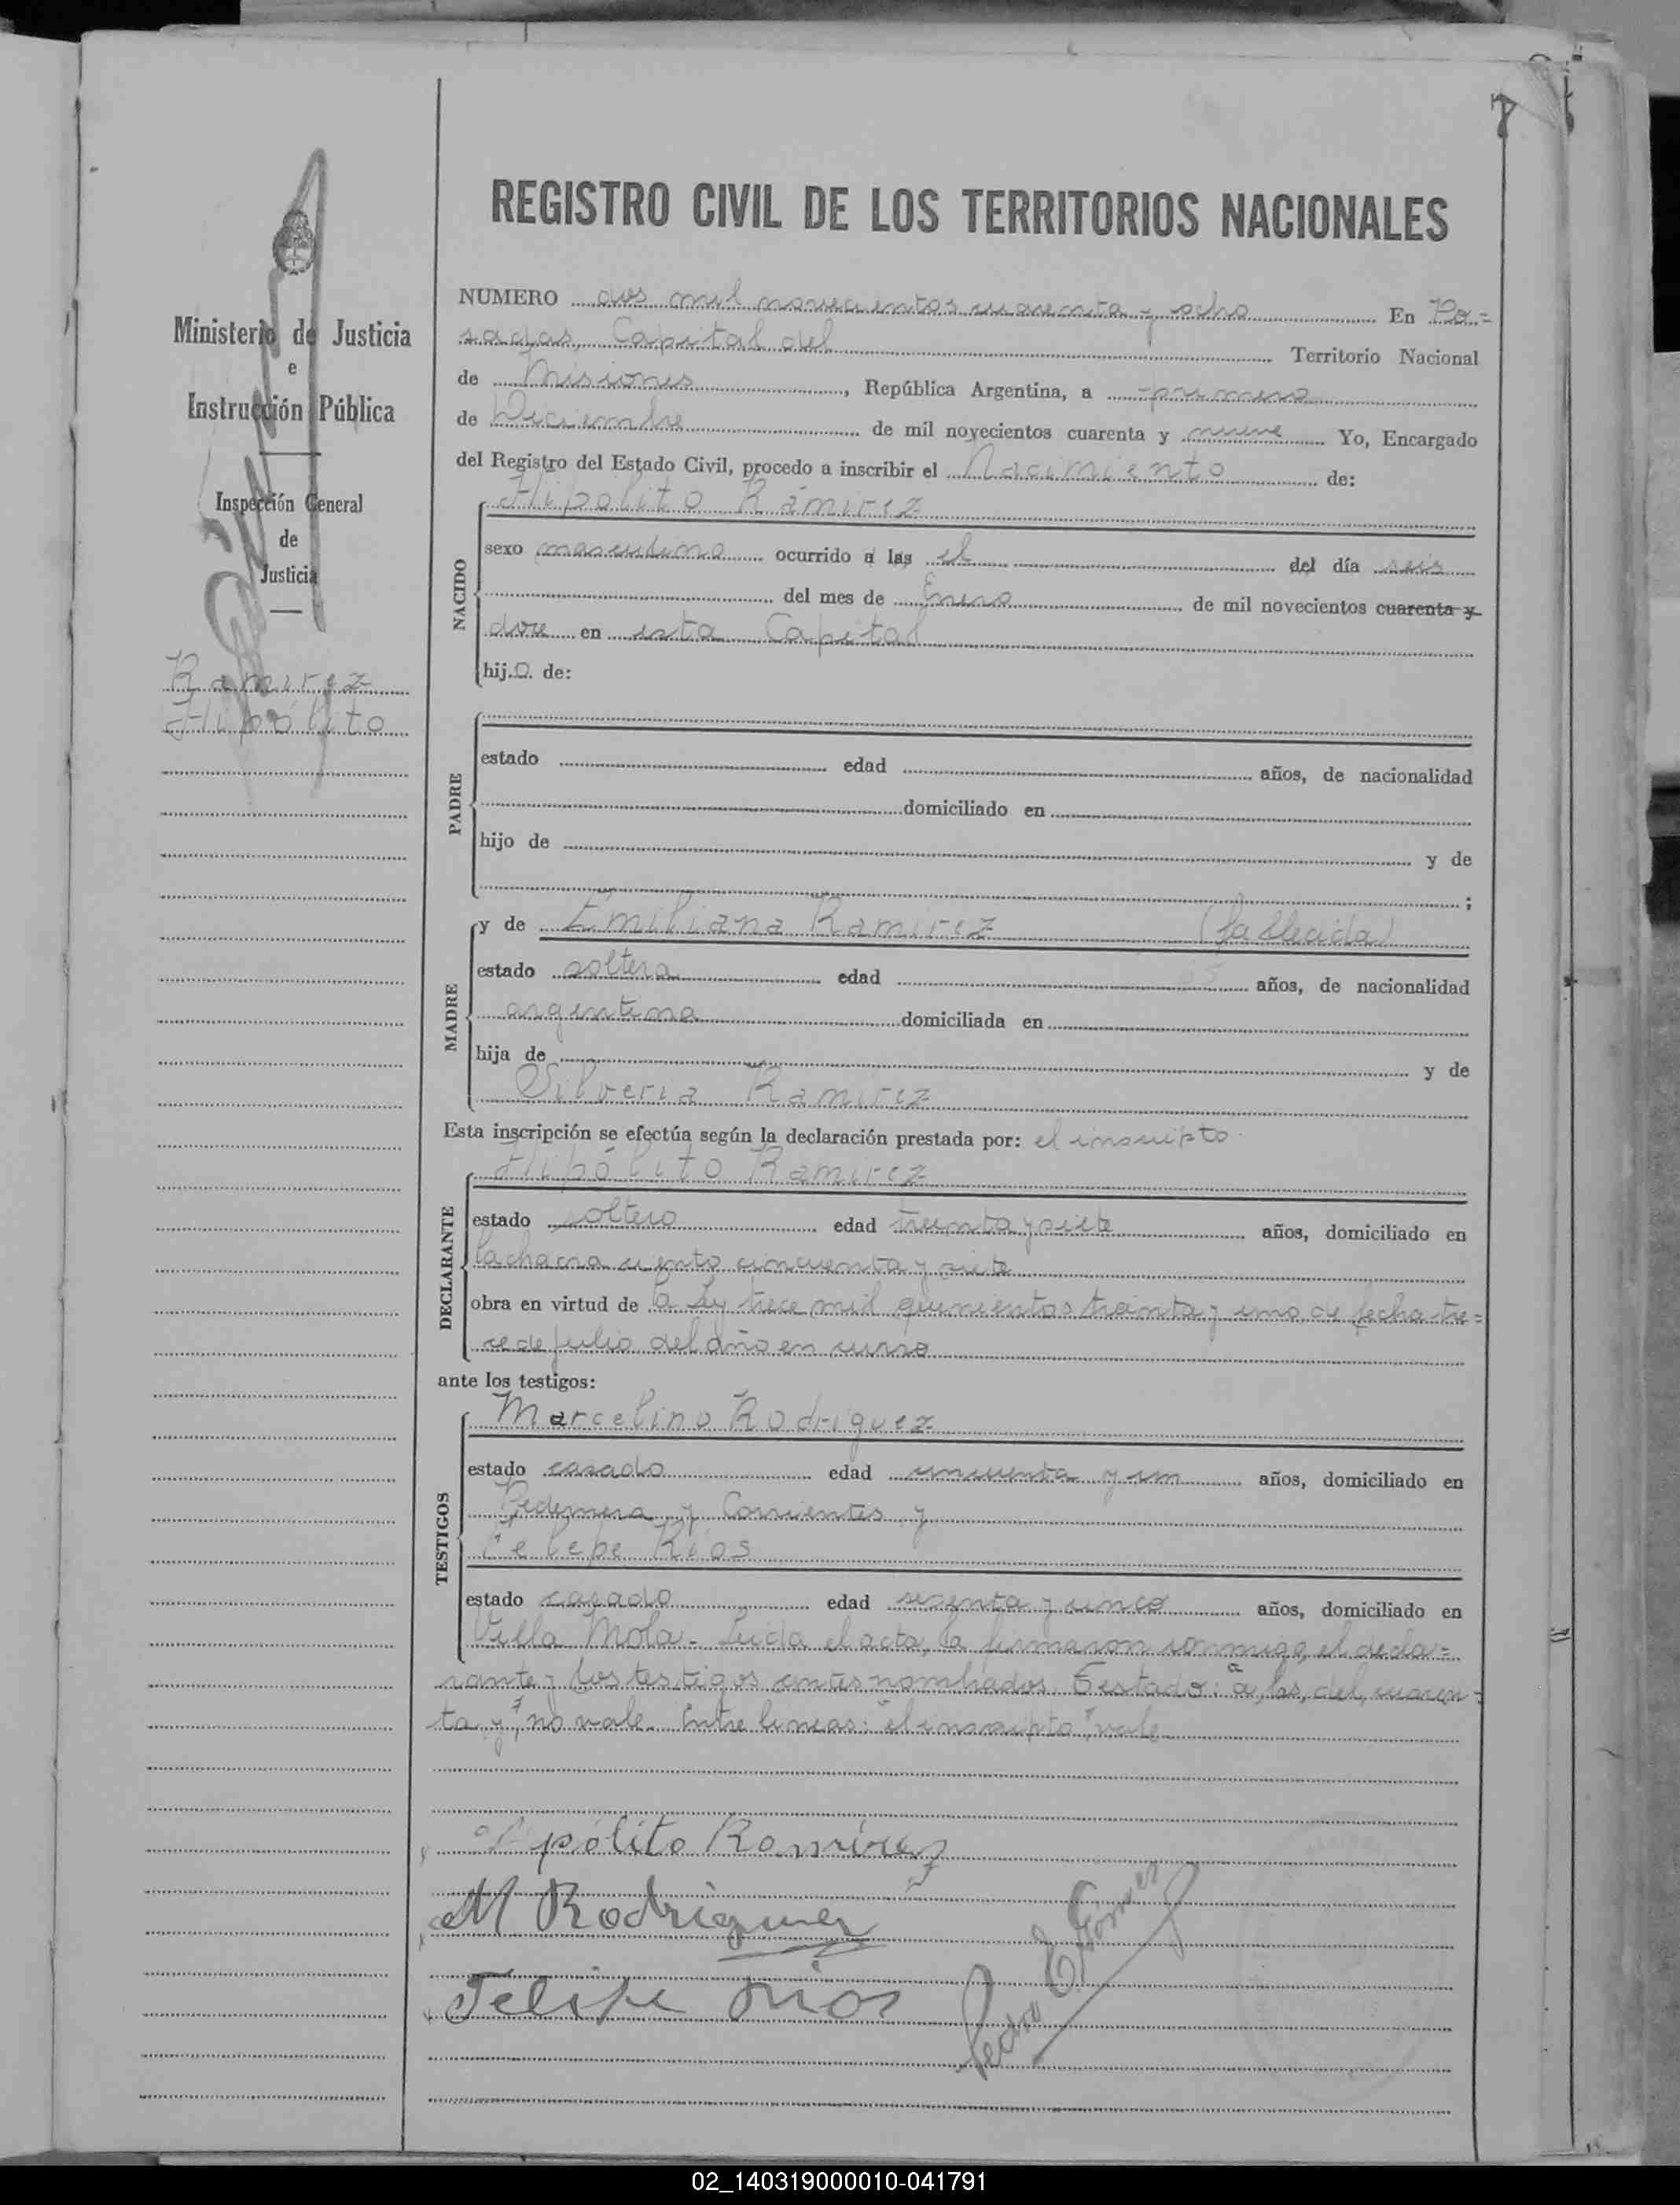 7
REGISTRO CIVIL DE LOS TERRITORIOS NACIONALES
Ministerio de Justicia
e
Instrucción Pública
Inspección General
de
Justicia
Ramirez
Hipólito
NUMERO dos mil novecientos cuarenta y ocho En Po=
sadas, Capital del Territorio Nacional
de Misiones, República Argentina, a primero
de Diciembre de mil novecientos cuarenta y nueve Yo, Encargado
del Registro del Estado Civil, procedo a inscribir el Nacimiento de:
NACIDO
Hipólito Ramirez
sexo masculino ocurrido a las el del día seis
del mes de Enero de mil novecientos cuarenta y
doce en esta Capital
hijo de:
PADRE
estado edad años, de nacionalidad
domiciliado en
hijo de y de
;
MADRE
y de Emiliana Ramirez (fallecida)
estado soltera edad años, de nacionalidad
argentina domiciliada en
hija de y de
Silveria Ramirez
Esta inscripción se efectúa según la declaración prestada por: el inscripto
DECLARANTE
Hipólito Ramirez
estado soltero edad treinta y siete años, domiciliado en
la chacra ciento cincuenta y siete
obra en virtud de la Ley trece mil quinientos treinta y uno de fecha tre=
ce de julio del año en curso
ante los testigos:
TESTIGOS
Marcelino Rodriguez
estado casado edad cincuenta y un años, domiciliado en
Pedernera y Corrientes y
Felepe Rios
estado casado edad sesenta y cinco años, domiciliado en
Villa Mola. Leida el acta, la firmaron conmigo, el decla=
rante y los testigos antes nombrados. Testado: "a, las, del, cuaren=
ta y", no vale. Entre lineas: "el inscripto", vale
Hipólito Ramirez
M Rodriguez
Felipe Rios
Pedro E Gómez
02_140319000010-041791